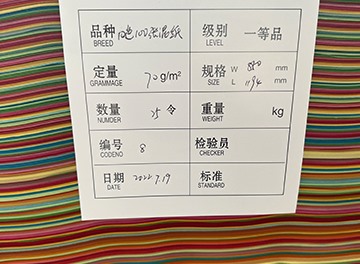 品种 10色100张混纸 级别 一等品
BREED LEVEL
定量 70g/m² 规格 W 550 mm
GRAMMAGE SIZE L 1194 mm
数量 25 令 重量 kg
NUMDER WEIGHT
编号 8 检验员
CODENO CHECKER
日期 2022.7.19 标准
DATE STANDARD